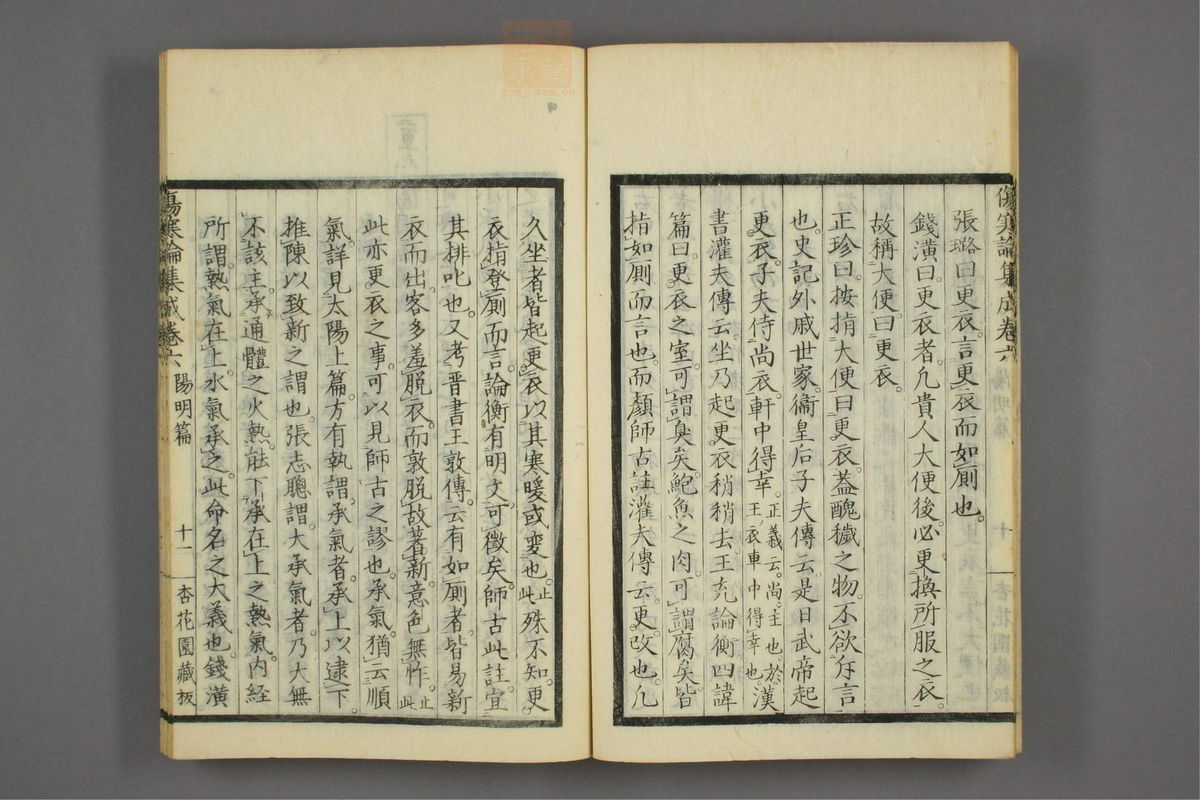 傷寒論集成卷六
張璐曰更衣言更衣而如厠也
錢潢曰更衣者凡貴人大便後必更換所服之衣
故稱大便曰更衣
正珍曰按揹大便曰更衣蓋醜穢之物不欲斥言
也史記外戚世家衞皇后子夫傳云是日武帝起
更衣子夫侍尚衣軒中得幸正義云尚主也於王衣車中得幸也漢
書灌夫傳云坐乃起更衣稍稍去王充論衡四諱
篇曰更衣之室可謂臭矣鮑魚之肉可謂腐矣皆
指如厠而言也而顏師古註灌夫傳云更改也凡
久坐者皆起更衣以其寒暖或變也止此殊不知更
衣揹登厠而言論衡有明文可徵矣師古此註宜
其排叱也又考晋書王敦傳云有如厠者皆易新
衣而出客多羞脱衣而敦脱故著新意色無怍止此
此亦更衣之事可以見師古之謬也承氣猶云順
氣詳見太陽上篇方有執謂承氣者承上以逮下
推陳以致新之謂也張志聰謂大承氣者乃大無
不該主承通體之火熱能下承在上之熱氣内經
所謂熱氣在上水氣承之此命名之大義也錢潢
傷寒論集成卷六 陽明篇 十一 杏花園藏板